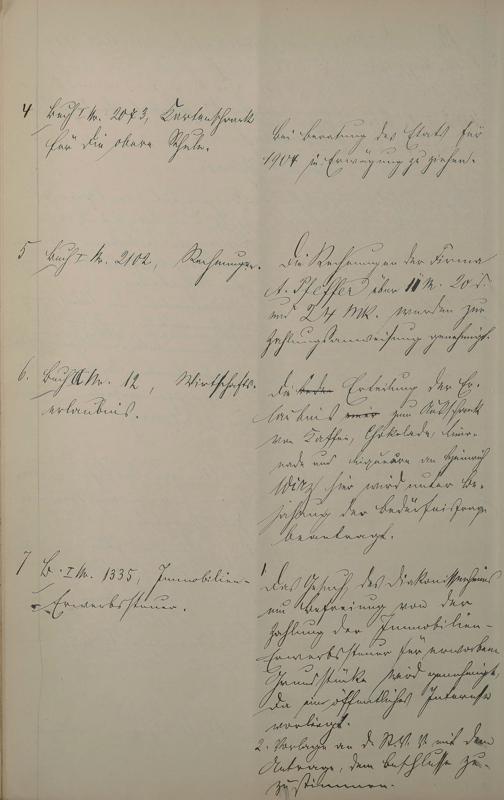 4 Buch I Nr. 2073, Kartenschrank
für die obere Schule.
Bei Beratung des Etats für
1904 in Erwägung zu ziehen.
5 Buch I Nr. 2102, Rechnungen.
Die Rechnungen der Firma
A. Pfeffer über 11 M. 20 S.
und 24 Mk. werden zur
Zahlungsanweisung genehmigt.
6. Buch Nr. 12, Wirtschafts-
erlaubnis.
Die Erteilung der Er-
laubnis zum Ausschank
von Kaffee, Chokolade, Limo-
nade und Liqueuren an Heinrich
Wirz hier wird unter Be-
jahung der Bedürfnisfrage
beantragt.
7 B. I Nr. 1335, Immobilien-
Erwerbssteuer.
1 Das Gesuch des Diakonissenheims
um Befreiung von der
Zahlung der Immobilien-
Erwerbssteuer für erworbene
Grundstücke wird genehmigt,
da ein öffentliches Interesse
vorliegt.
2. Vorlage an d. St. V. V. mit dem
Antrage, dem Beschlusse zu-
zustimmen.